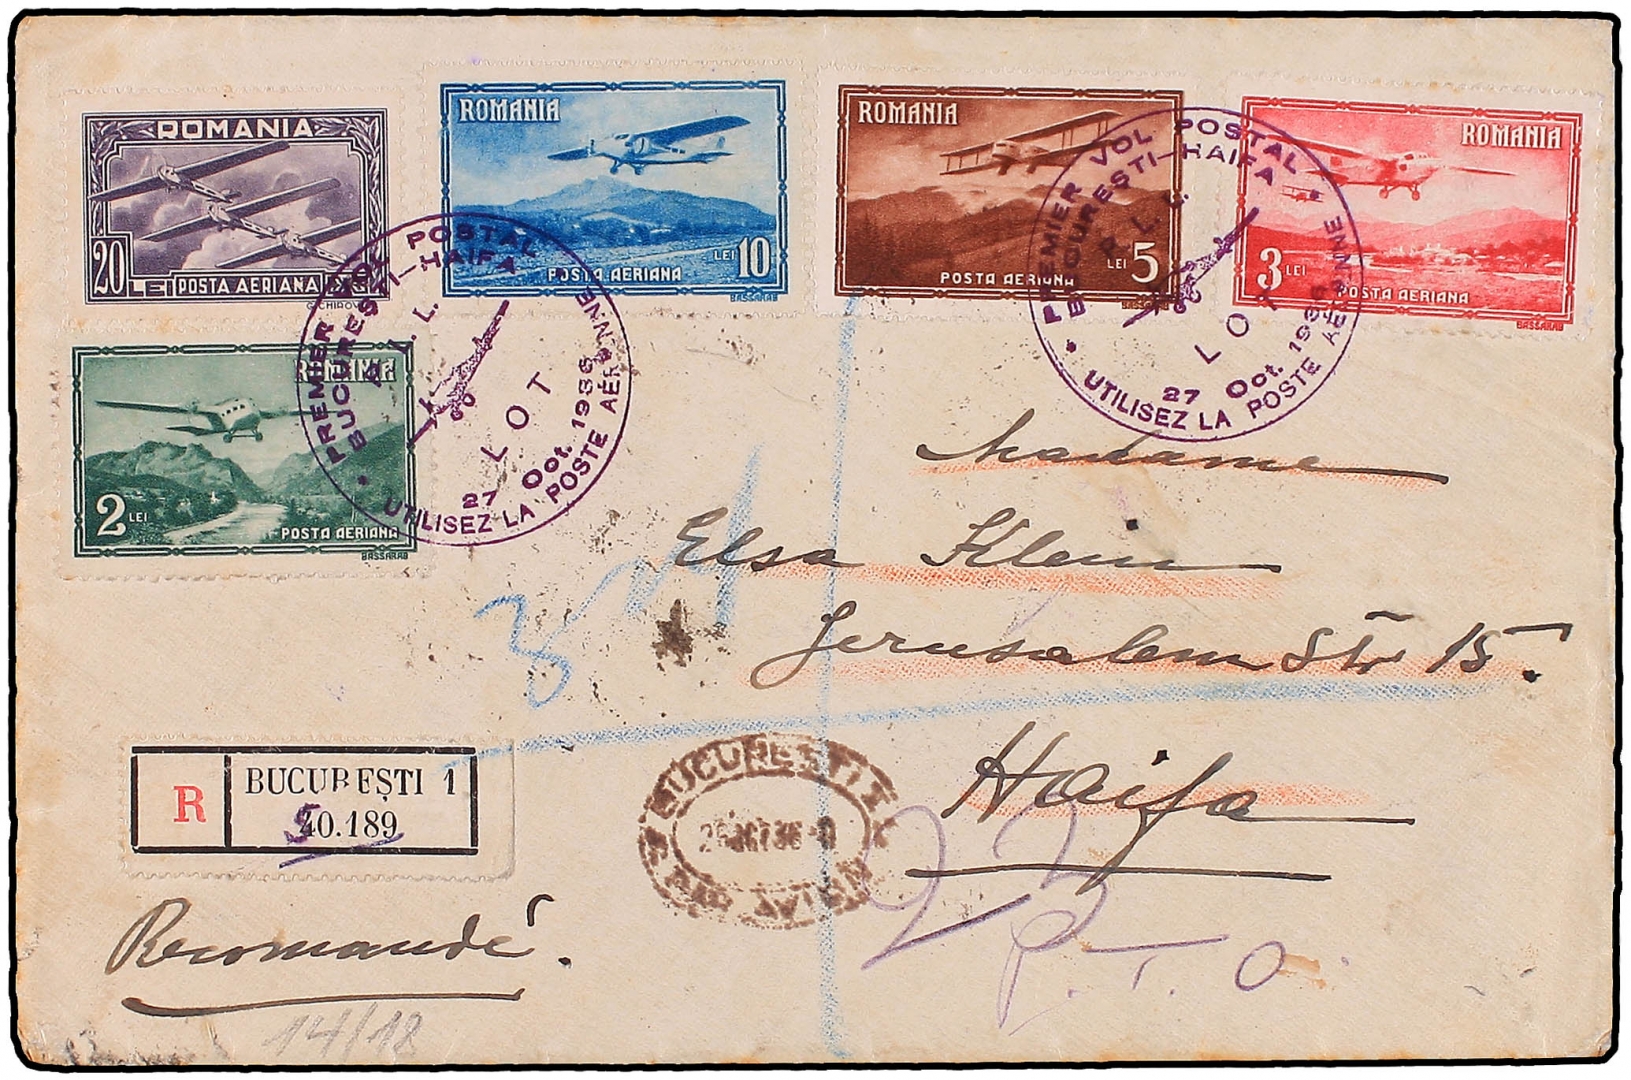 ROMANIA
20 LEI POSTA AERIANA
ROMANIA
LEI 10
POSTA AERIANA
BASSARAB
ROMANIA
LEI 5
POSTA AERIANA
ROMANIA
3 LEI
POSTA AERIANA
BASSARAB
ROMANIA
2 LEI
POSTA AERIANA
BASSARAB
PREMIER VOL POSTAL
BUCUREȘTI-HAIFA
LOT
27 Oct. 1936
UTILISEZ LA POSTE AÉRIENNE
PREMIER VOL POSTAL
BUCUREȘTI-HAIFA
LOT
27 Oct. 1936
UTILISEZ LA POSTE AÉRIENNE
Madame
Elsa Klein
Jerusalem Str 15.
Haifa
R
BUCUREȘTI 1
40.189
BUCUREȘTI
Recomandé.
P.T.O.
14/18